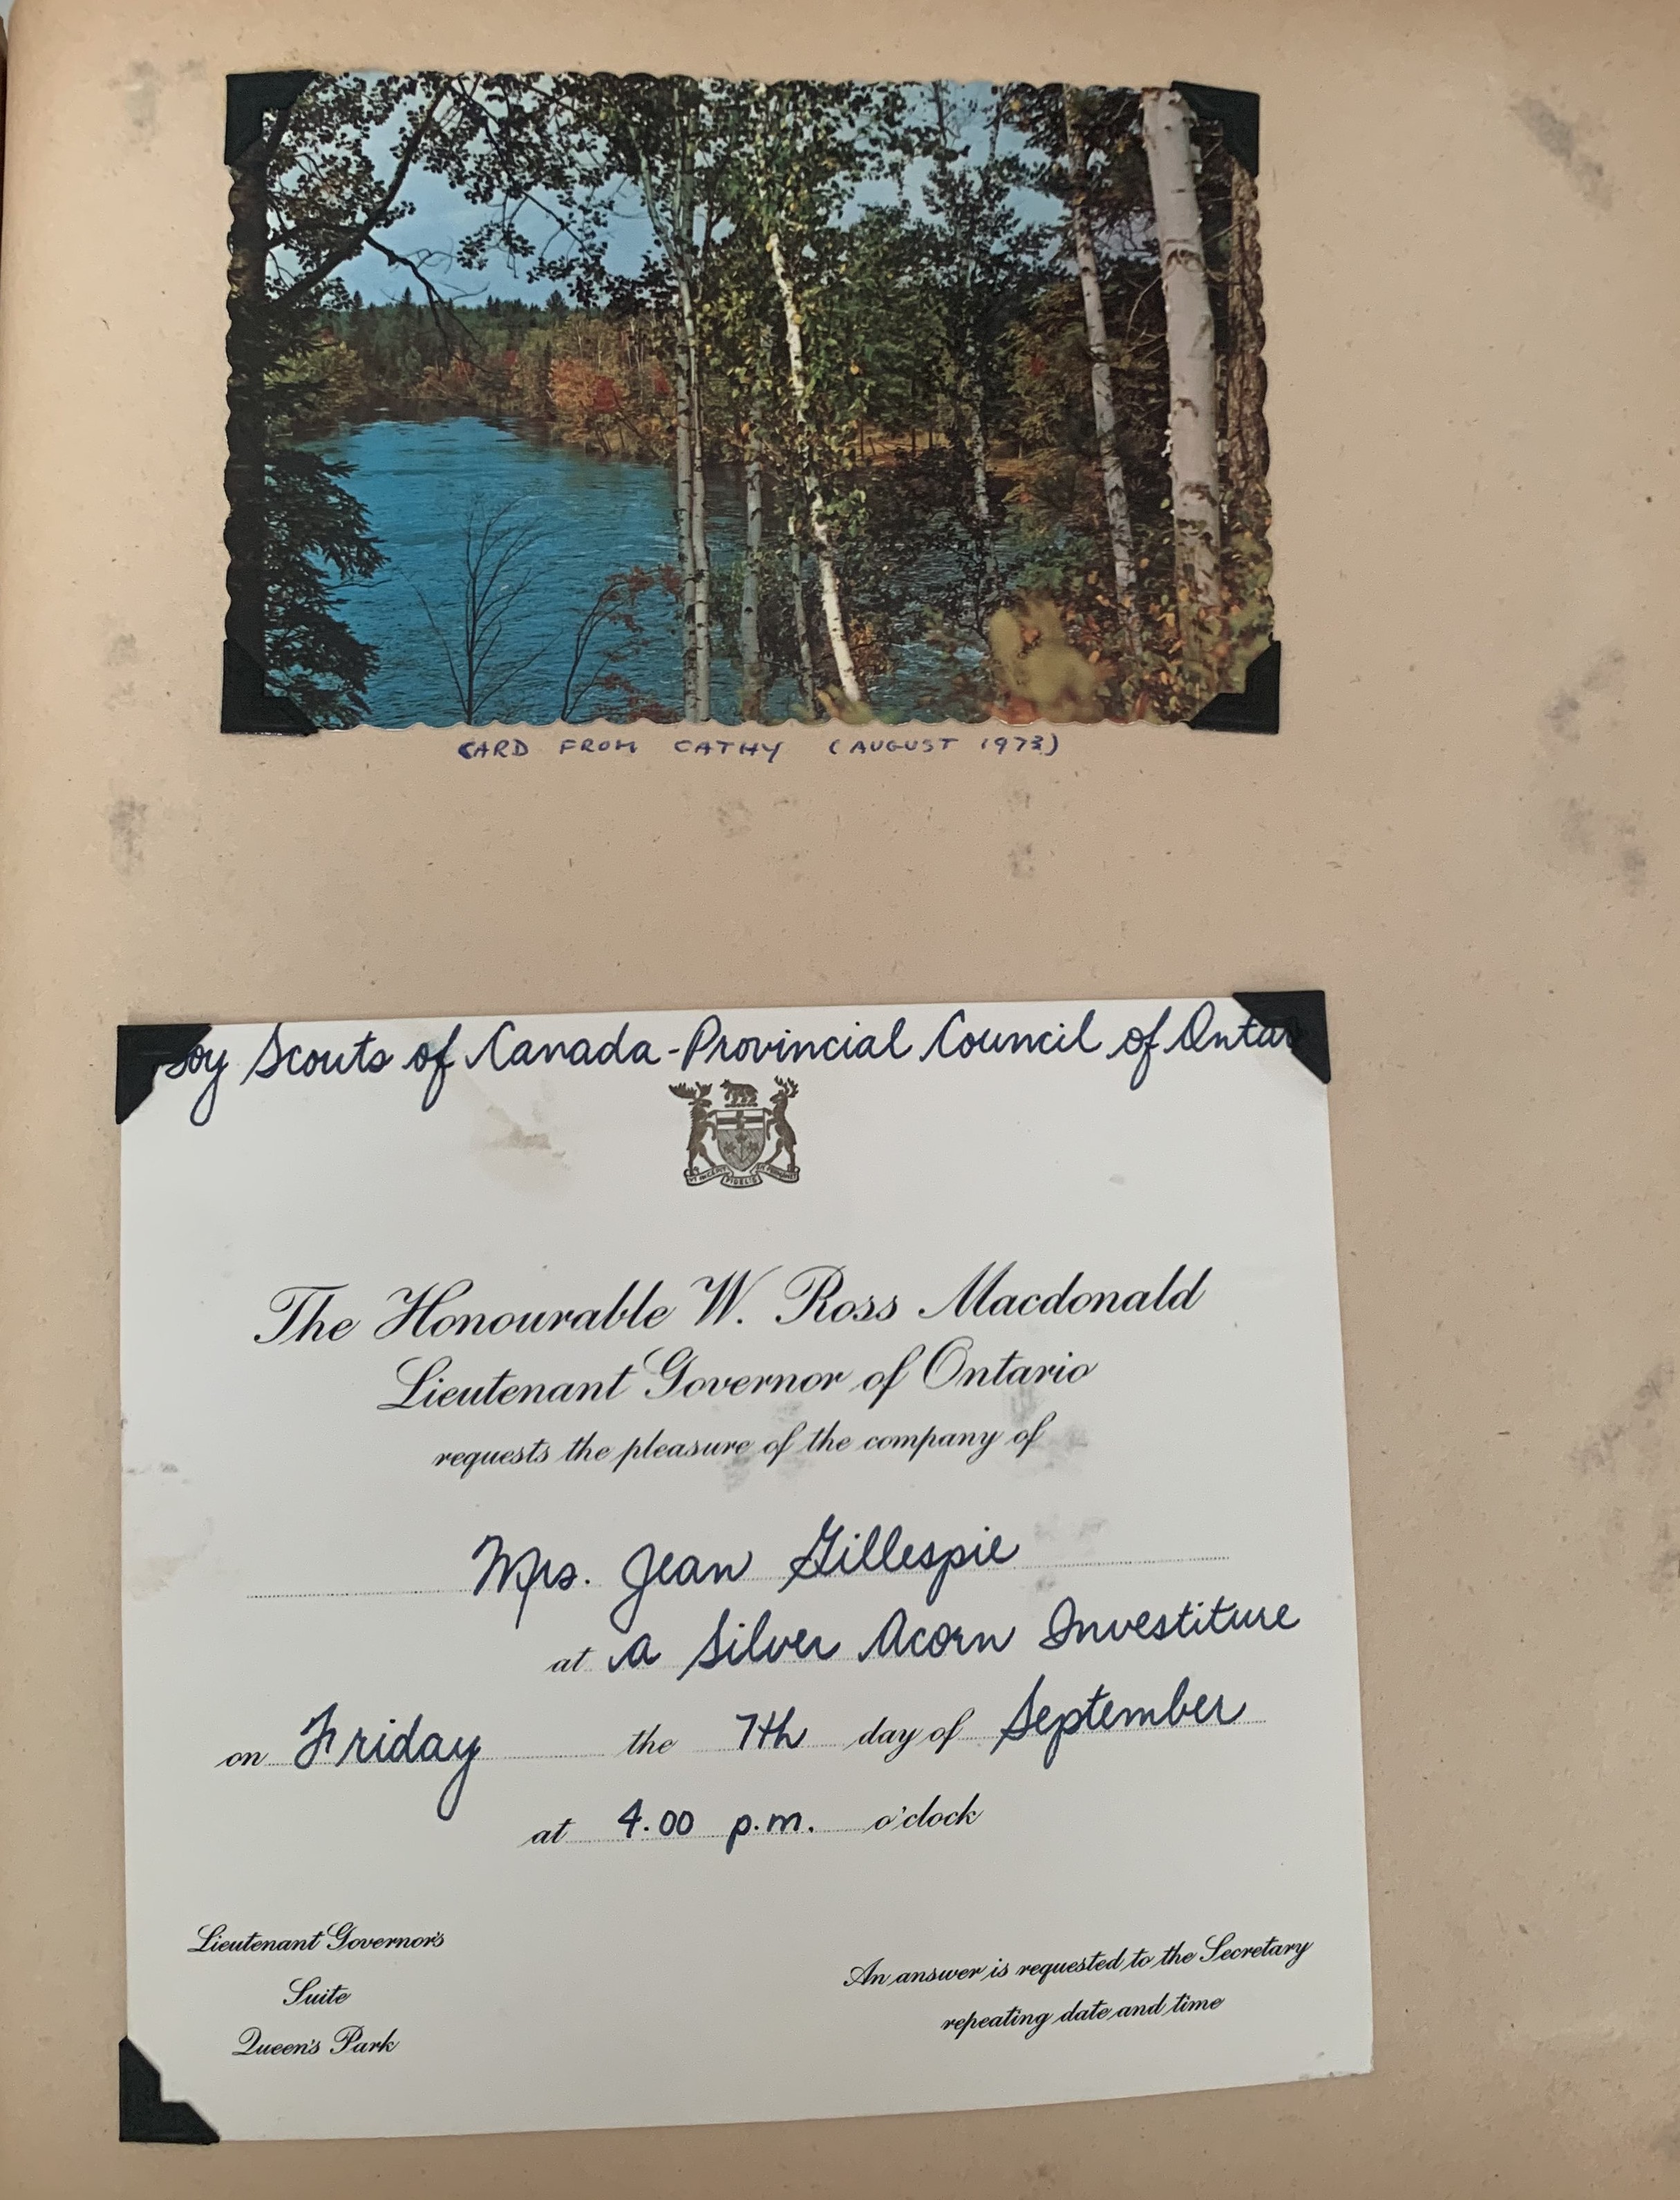 CARD FROM CATHY (AUGUST 1973)
oy Scouts of Canada - Provincial Council of Ontar
The Honourable W. Ross Macdonald
Lieutenant Governor of Ontario
requests the pleasure of the company of
Mrs. Jean Gillespie
at a Silver Acorn Investiture
on Friday the 7th day of September
at 4.00 p.m. o'clock
Lieutenant Governor's
Suite
Queen's Park
An answer is requested to the Secretary
repeating date and time